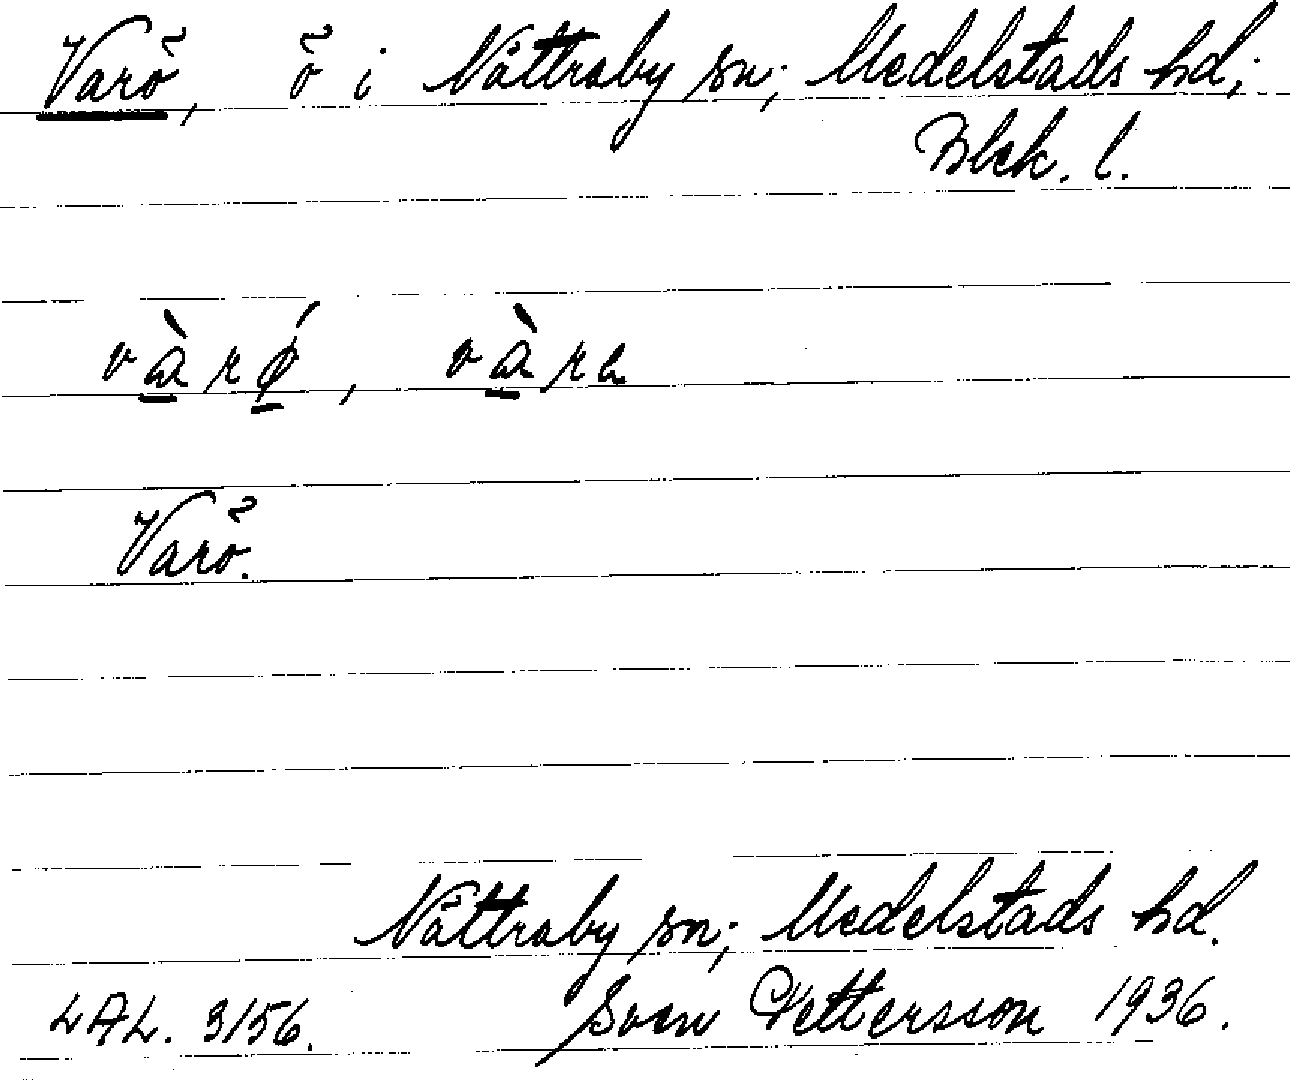 Varö, ö i Nättraby sn; Medelstads hd;
Blek. l.
và̱rǿ̱, và̱ra
Varö.
Nättraby sn; Medelstads hd.
LAL. 3156. Sven Pettersson 1936.